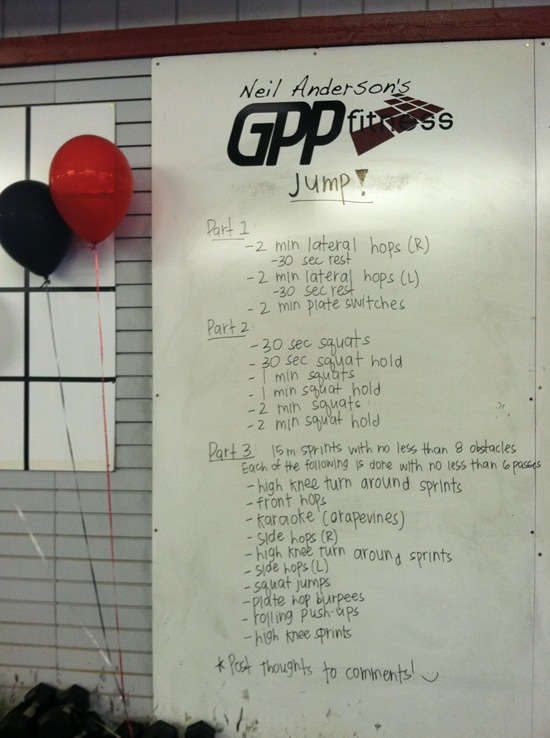 Neil Anderson's
GPP fitness
Jump!
Part 1:
-2 min lateral hops (R)
-30 sec rest
-2 min lateral hops (L)
-30 sec rest
-2 min plate switches
Part 2:
-30 sec squats
-30 sec squat hold
-1 min squats
-1 min squat hold
-2 min squats
-2 min squat hold
Part 3: 15m sprints with no less than 8 obstacles
Each of the following is done with no less than 6 passes
-high knee turn around sprints
-front hops
-karaoke (grapevines)
-side hops (R)
-high knee turn around sprints
-side hops (L)
-squat jumps
-plate hop burpees
-rolling push-ups
-high knee sprints
*Post thoughts to comments!